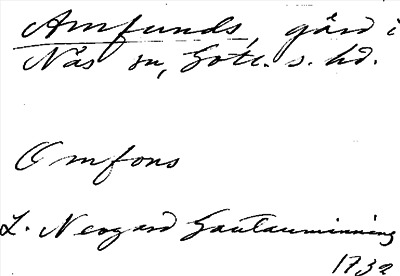 Amfunds, gård i
Näs sn, Gotl. s. hd.
Omfons
L. Neogard Gautauminning
1732